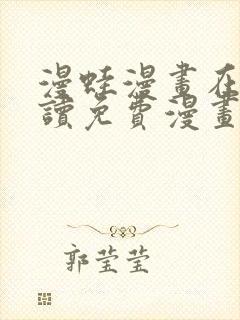 漫蛙漫畫在
讀免費漫畫
郭莹莹